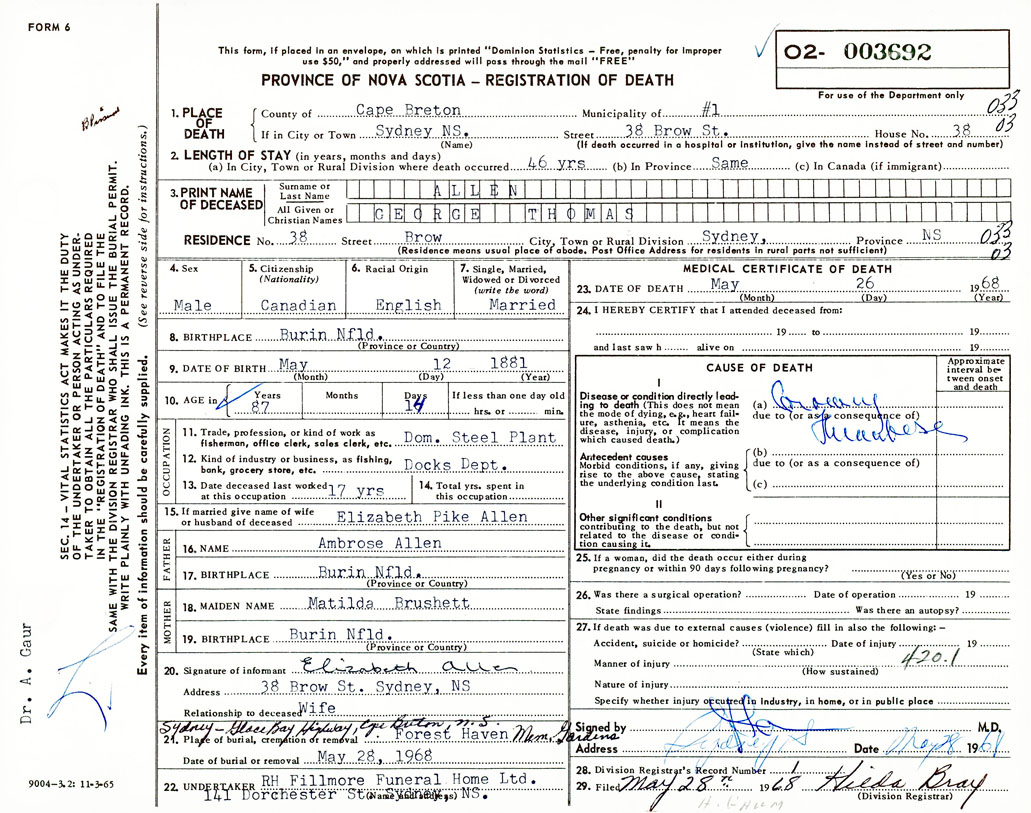 FORM 6
This form, if placed in an envelope, on which is printed "Dominion Statistics – Free, penalty for improper
use $50," and properly addressed will pass through the mail "FREE"
PROVINCE OF NOVA SCOTIA – REGISTRATION OF DEATH
O2- 003692
For use of the Department only
SEC. 14 – VITAL STATISTICS ACT MAKES IT THE DUTY
OF THE UNDERTAKER OR PERSON ACTING AS UNDER-
TAKER TO OBTAIN ALL THE PARTICULARS REQUIRED
IN THE "REGISTRATION OF DEATH" AND TO FILE THE
SAME WITH THE DIVISION REGISTRAR WHO SHALL ISSUE THE BURIAL PERMIT.
WRITE PLAINLY WITH UNFADING INK. THIS IS A PERMANENT RECORD.
Every item of information should be carefully supplied. (See reverse side for instructions.)
Dr. A. Gaur
9004-3.2: 11-3-65
1. PLACE OF DEATH County of Cape Breton Municipality of #1 033
If in City or Town Sydney NS. Street 38 Brow St. House No. 38 03
(Name) (If death occurred in a hospital or institution, give the name instead of street and number)
2. LENGTH OF STAY (in years, months and days)
(a) In City, Town or Rural Division where death occurred 46 yrs (b) In Province Same (c) In Canada (if immigrant)
3. PRINT NAME OF DECEASED Surname or Last Name ALLEN
All Given or Christian Names GEORGE THOMAS
RESIDENCE No. 38 Street Brow City, Town or Rural Division Sydney, Province NS 033
(Residence means usual place of abode. Post Office Address for residents in rural parts not sufficient) 03
4. Sex Male
5. Citizenship (Nationality) Canadian
6. Racial Origin English
7. Single, Married, Widowed or Divorced (write the word) Married
8. BIRTHPLACE Burin Nfld.
(Province or Country)
9. DATE OF BIRTH May 12 1881
(Month) (Day) (Year)
10. AGE in Years 87 Months Days 14 If less than one day old hrs. or min.
OCCUPATION
11. Trade, profession, or kind of work as fisherman, office clerk, sales clerk, etc. Dom. Steel Plant
12. Kind of industry or business, as fishing, bank, grocery store, etc. Docks Dept.
13. Date deceased last worked at this occupation 17 yrs
14. Total yrs. spent in this occupation
15. If married give name of wife or husband of deceased Elizabeth Pike Allen
FATHER
16. NAME Ambrose Allen
17. BIRTHPLACE Burin Nfld.
(Province or Country)
MOTHER
18. MAIDEN NAME Matilda Brushett
19. BIRTHPLACE Burin Nfld.
(Province or Country)
20. Signature of informant Elizabeth Allen
Address 38 Brow St. Sydney, NS
Relationship to deceased Wife
Sydney – Glace Bay Highway, Cape Breton, N.S.
21. Place of burial, cremation or removal Forest Haven Mem. Gardens
Date of burial or removal May 28, 1968
22. UNDERTAKER RH Fillmore Funeral Home Ltd.
141 Dorchester St. Sydney, NS.
(Name and address)
MEDICAL CERTIFICATE OF DEATH
23. DATE OF DEATH May 26 1968
(Month) (Day) (Year)
24. I HEREBY CERTIFY that I attended deceased from:
19 to 19
and last saw h alive on 19
CAUSE OF DEATH
Approximate interval between onset and death
I
Disease or condition directly leading to death (This does not mean the mode of dying, e.g., heart failure, asthenia, etc. It means the disease, injury, or complication which caused death.)
(a) Coronary
due to (or as a consequence of)
Thrombosis
Antecedent causes
Morbid conditions, if any, giving rise to the above cause, stating the underlying condition last.
(b)
due to (or as a consequence of)
(c)
II
Other significant conditions
contributing to the death, but not related to the disease or condition causing it.
25. If a woman, did the death occur either during
pregnancy or within 90 days following pregnancy?
(Yes or No)
26. Was there a surgical operation? Date of operation 19
State findings Was there an autopsy?
27. If death was due to external causes (violence) fill in also the following: –
Accident, suicide or homicide? Date of injury 19
(State which)
Manner of injury 420.1
(How sustained)
Nature of injury
Specify whether injury occurred in Industry, in home, or in public place
Signed by M.D.
Address Sydney NS Date May 28 1968
28. Division Registrar's Record Number 1
29. Filed May 28th 1968 Hilda Bray
(Division Registrar)